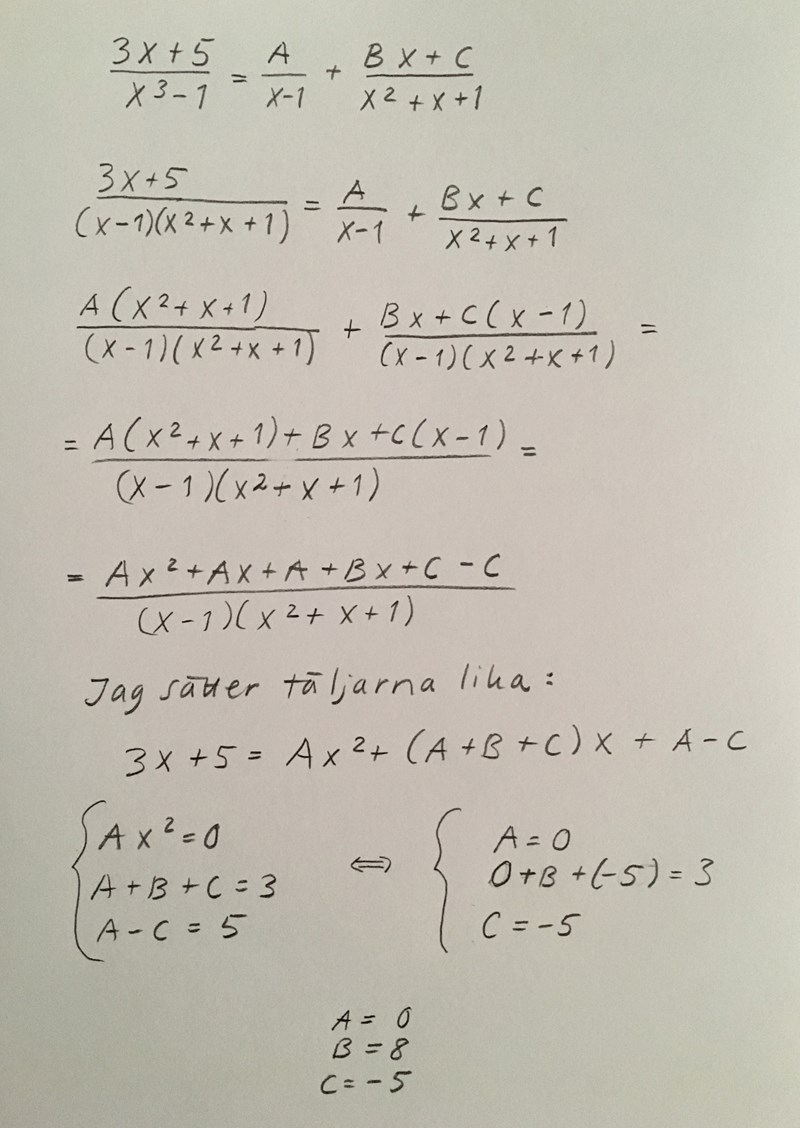 (3x+5)/(x³-1) = A/(x-1) + (Bx+C)/(x²+x+1)
(3x+5)/((x-1)(x²+x+1)) = A/(x-1) + (Bx+C)/(x²+x+1)
A(x²+x+1)/((x-1)(x²+x+1)) + Bx+C(x-1)/((x-1)(x²+x+1)) =
= A(x²+x+1)+Bx+C(x-1)/((x-1)(x²+x+1)) =
= Ax²+Ax+A+Bx+C-C/((x-1)(x²+x+1))
Jag sätter täljarna lika:
3x+5 = Ax²+(A+B+C)x+A-C
{ Ax²=0 ⇔ { A=0
A+B+C=3 0+B+(-5)=3
A-C=5 C=-5
A=0
B=8
C=-5